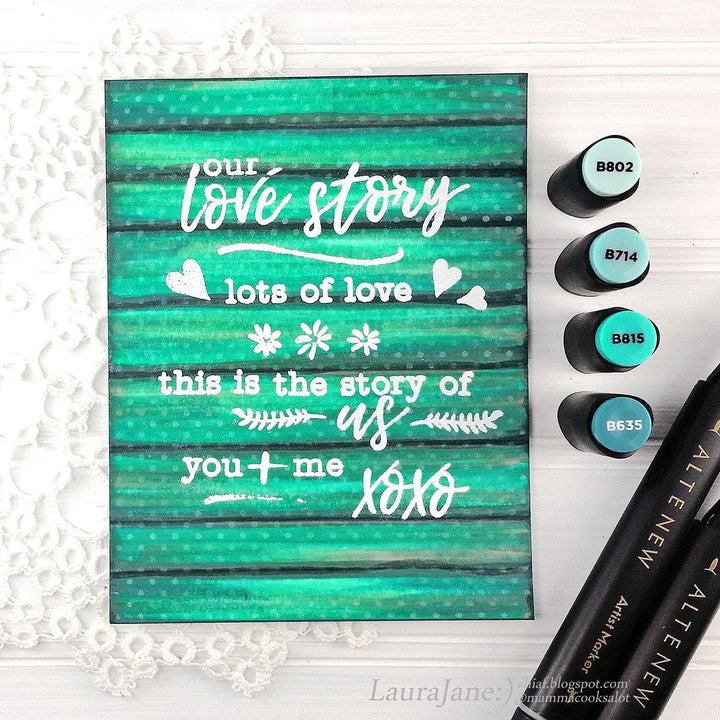 our
love story
lots of love
this is the story of
us
you + me
xoxo
B802
B714
B815
B635
ALTENEW
Artist Marker
ALTENEW
LauraJane:)
hiaf.blogspot.com
@mammacooksalot